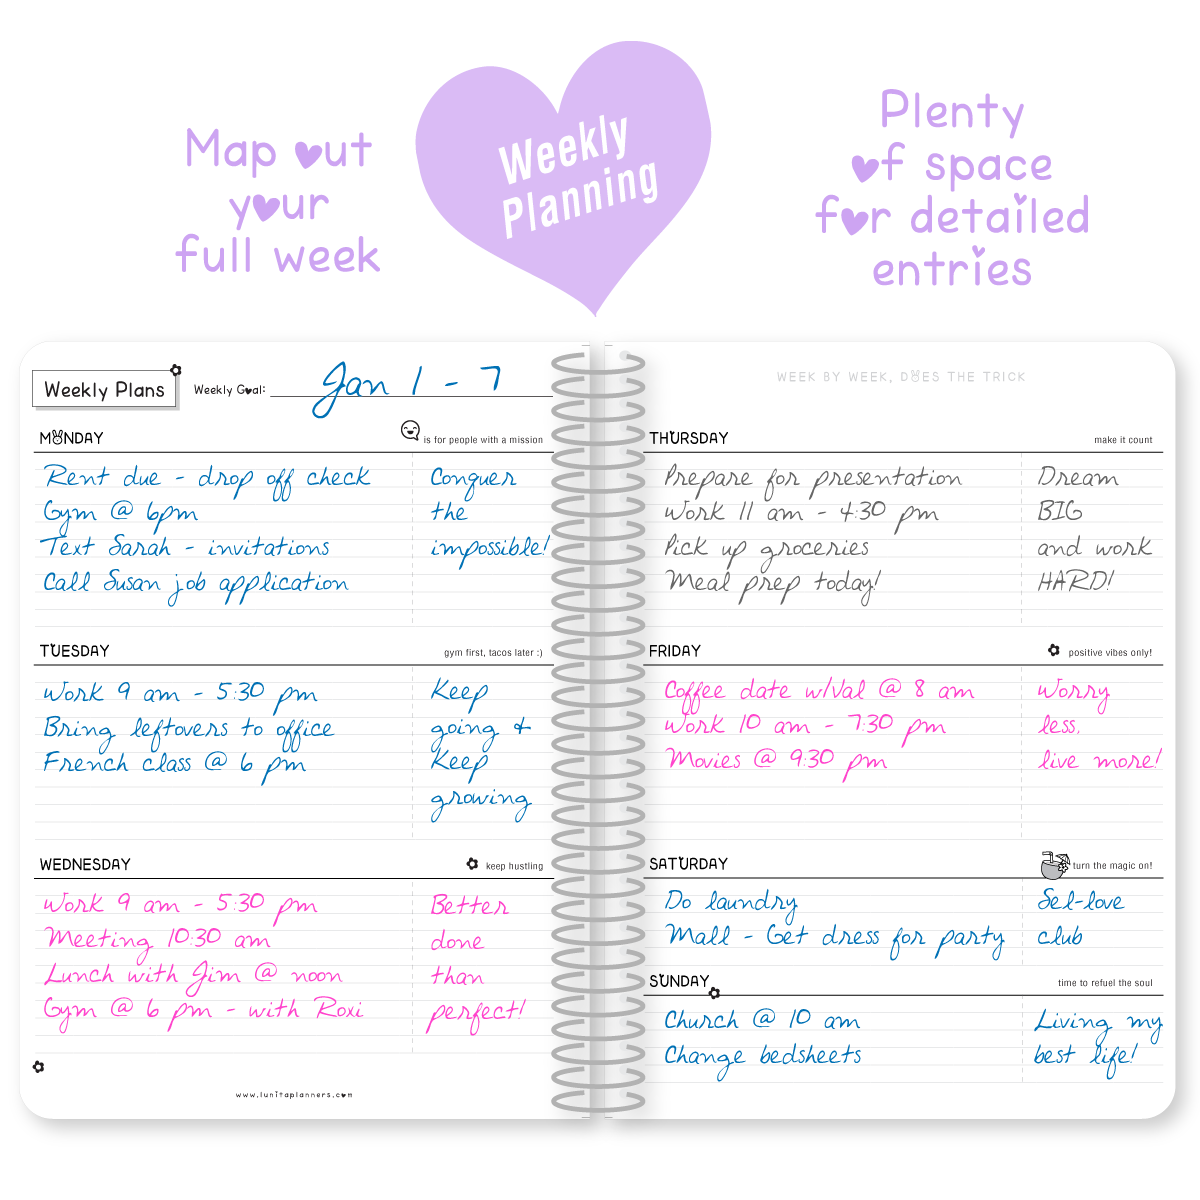 Map out
your
full week
Weekly
Planning
Plenty
of space
for detailed
entries
Weekly Plans
Weekly Goal: Jan 1 - 7
MONDAY
is for people with a mission
Rent due - drop off check
Gym @ 6pm
Text Sarah - invitations
Call Susan job application
Conquer
the
impossible!
TUESDAY
gym first, tacos later :)
Work 9 am - 5:30 pm
Bring leftovers to office
French class @ 6 pm
Keep
going &
Keep
growing
WEDNESDAY
keep hustling
Work 9 am - 5:30 pm
Meeting 10:30 am
Lunch with Jim @ noon
Gym @ 6 pm - with Roxi
Better
done
than
perfect!
www.lunitaplanners.com
WEEK BY WEEK, DOES THE TRICK
THURSDAY
make it count
Prepare for presentation
Work 11 am - 4:30 pm
Pick up groceries
Meal prep today!
Dream
BIG
and work
HARD!
FRIDAY
positive vibes only!
Coffee date w/Val @ 8 am
Work 10 am - 7:30 pm
Movies @ 9:30 pm
Worry
less,
live more!
SATURDAY
turn the magic on!
Do laundry
Mall - Get dress for party
Sel-love
club
SUNDAY
time to refuel the soul
Church @ 10 am
Change bedsheets
Living my
best life!